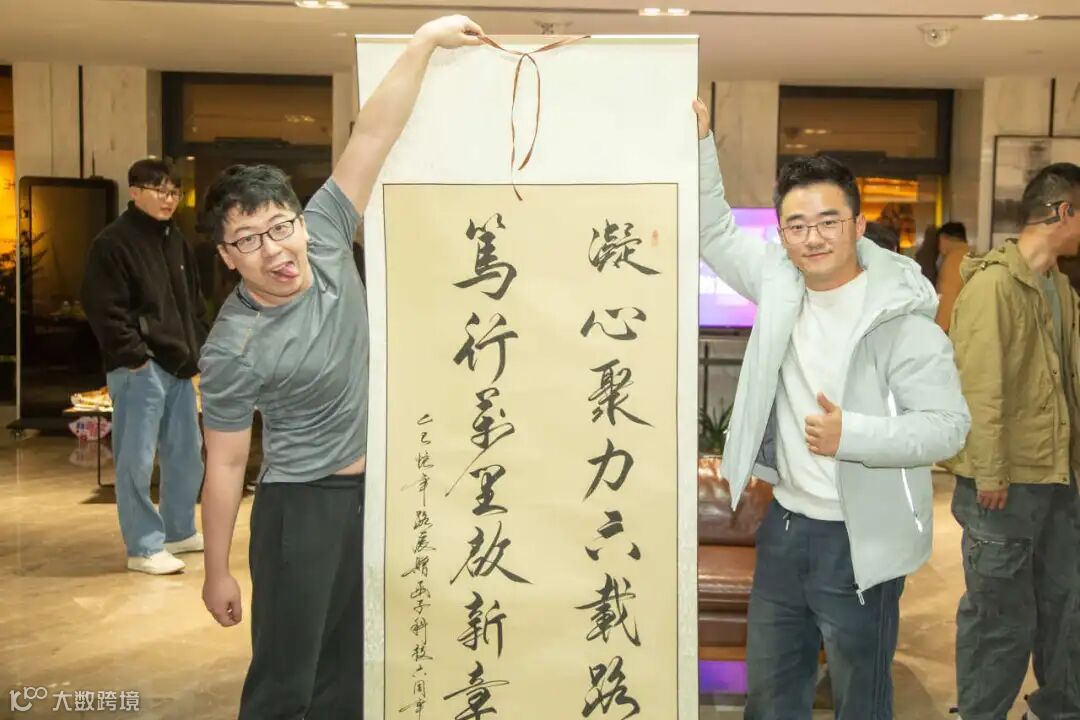 凝心聚力六载路
篤行萬里啟新章
乙巳
年路
贈
子科技六周年
大数跨境